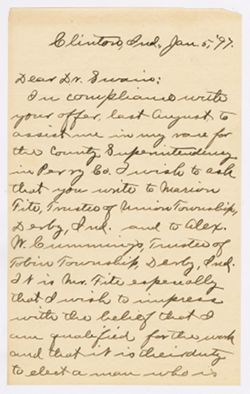 Clinton, Ind. Jan. 5, '97.
Dear Dr. Swain:
In compliance with
your offer, last August, to
assist me in my race for
the County Superintendency
in Perry Co. I wish to ask
that you write to Marion
Fite, Trustee of Union Township,
Derby, Ind. and to Alex.
W. Cummings, Trustee of
Tobin Township, Derby, Ind.
It is Mr. Fite especially
that I wish to impress
with the belief that I
am qualified for the work
and that it is their duty
to elect a man who is